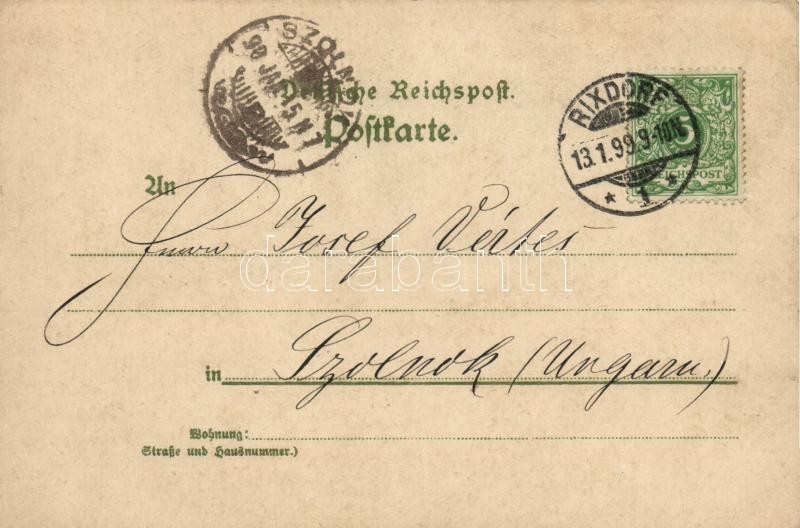 SZOLNOK
Deutsche Reichspost.
Postkarte.
RIXDORF
13.1.99.9-10N.
* 1 *
5
REICHSPOST
An
Herrn Josef Vértes
darabanth
in Szolnok (Ungarn)
Wohnung:
Straße und Hausnummer.)